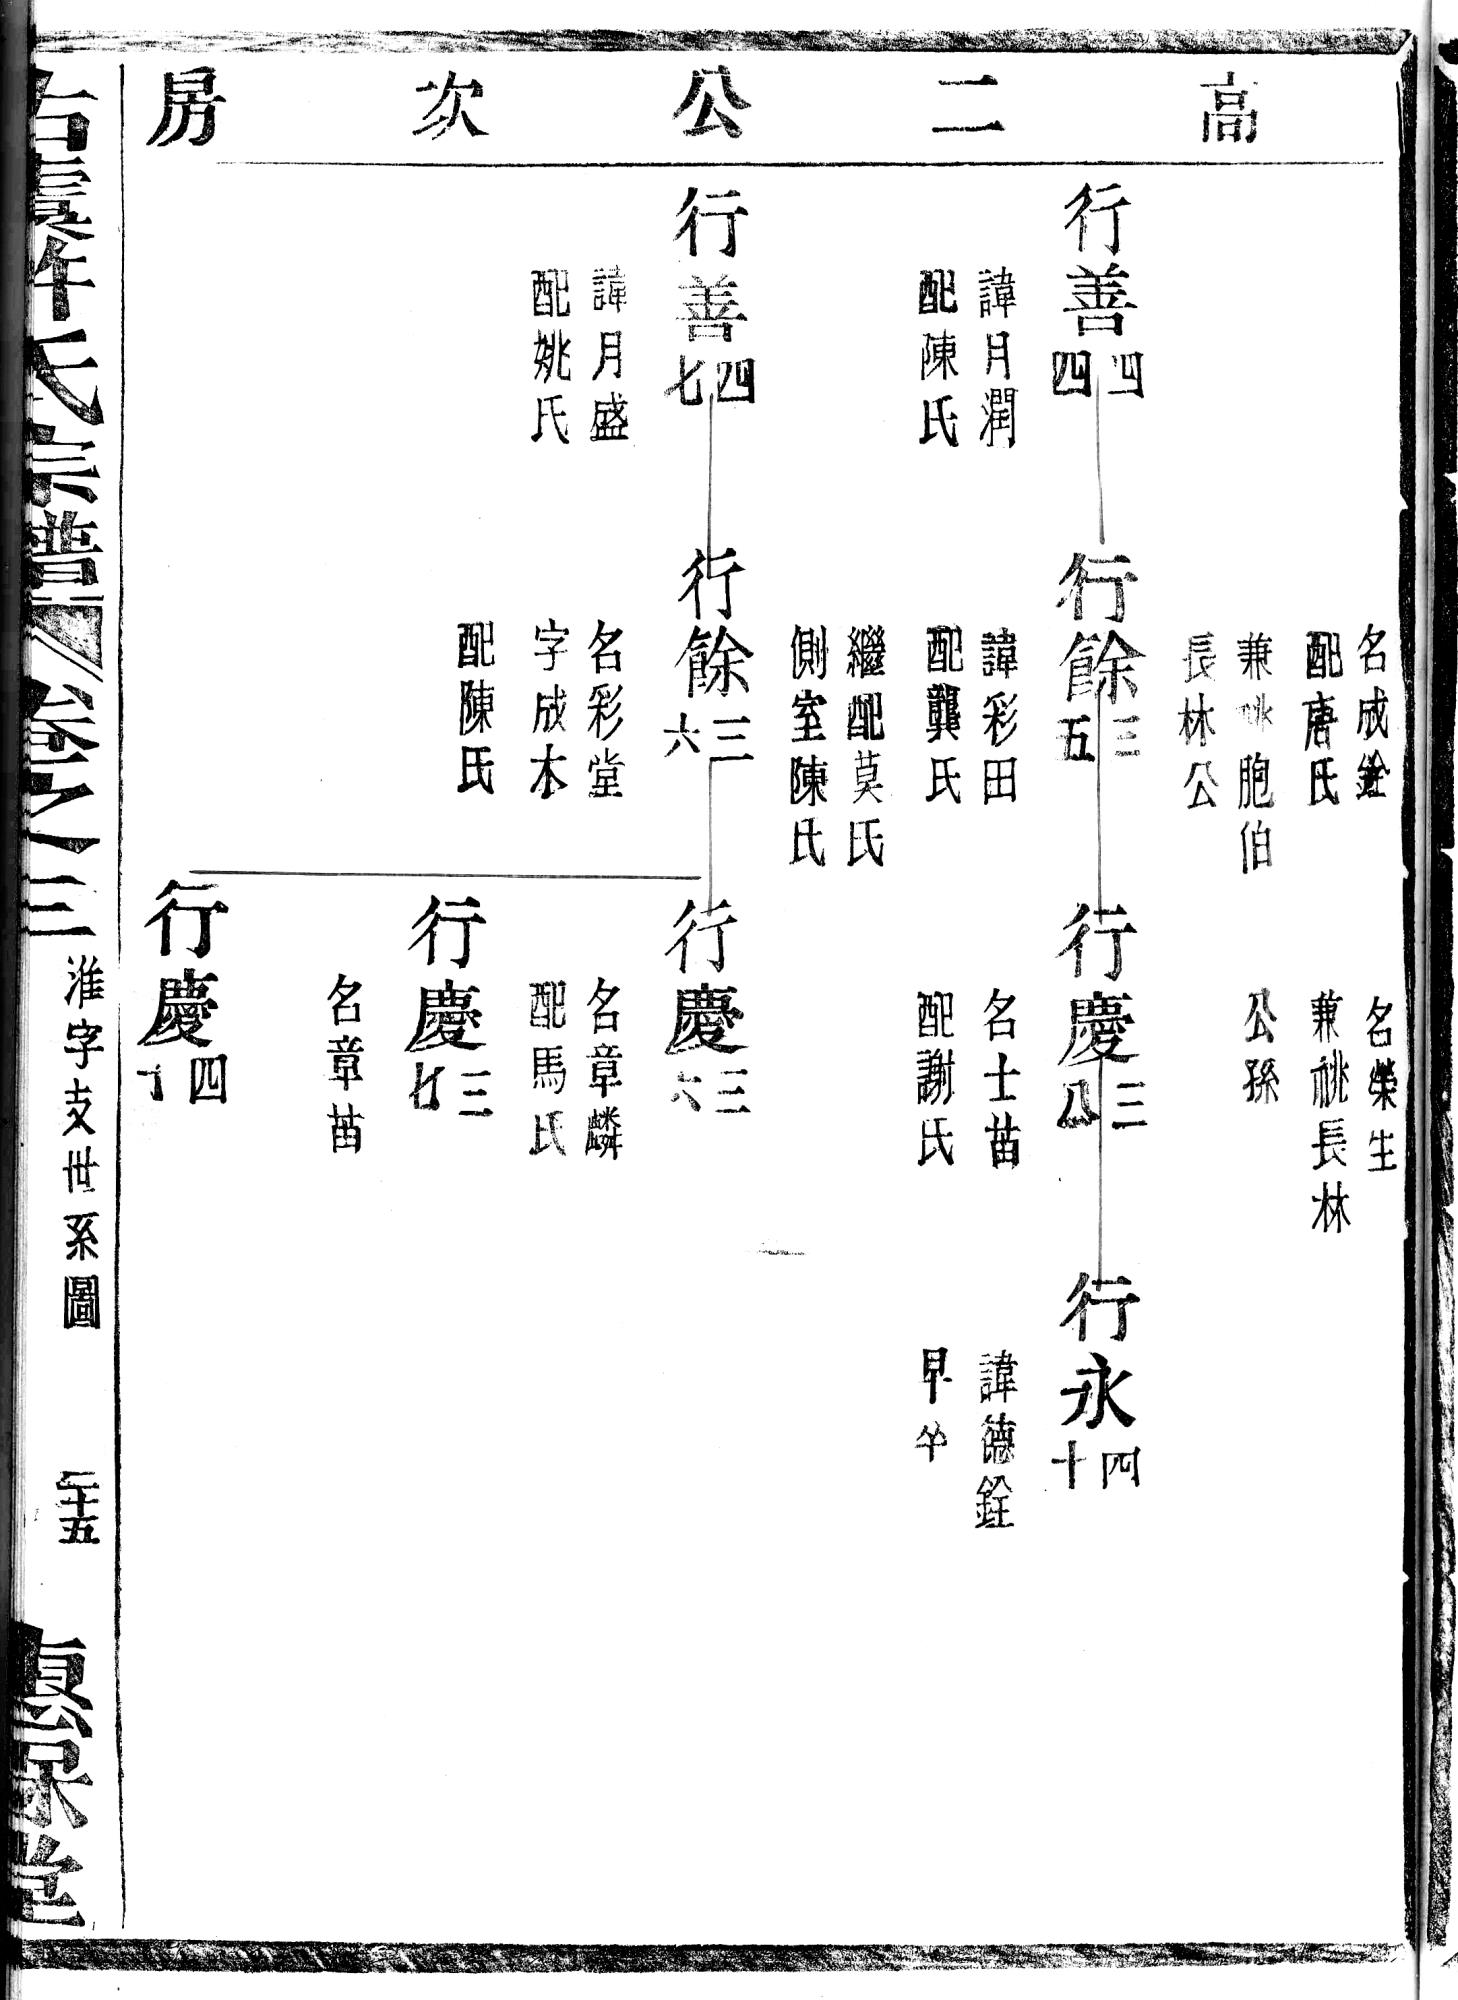 高二公次房
名成銓
配唐氏
兼祧胞伯
長林公
名榮生
兼祧長林
公孫
行善四四
諱月潤
配陳氏
行餘三五
諱彩田
配龔氏
繼配莫氏
側室陳氏
行慶三八
名士苗
配謝氏
行永四十
諱德銓
早卒
行善四七
諱月盛
配姚氏
行餘三六
名彩堂
字成木
配陳氏
行慶三六
名章麟
配馬氏
行慶三七
名章苗
行慶四十
古虞許氏宗譜 卷之三
淮字支世系圖
二十五